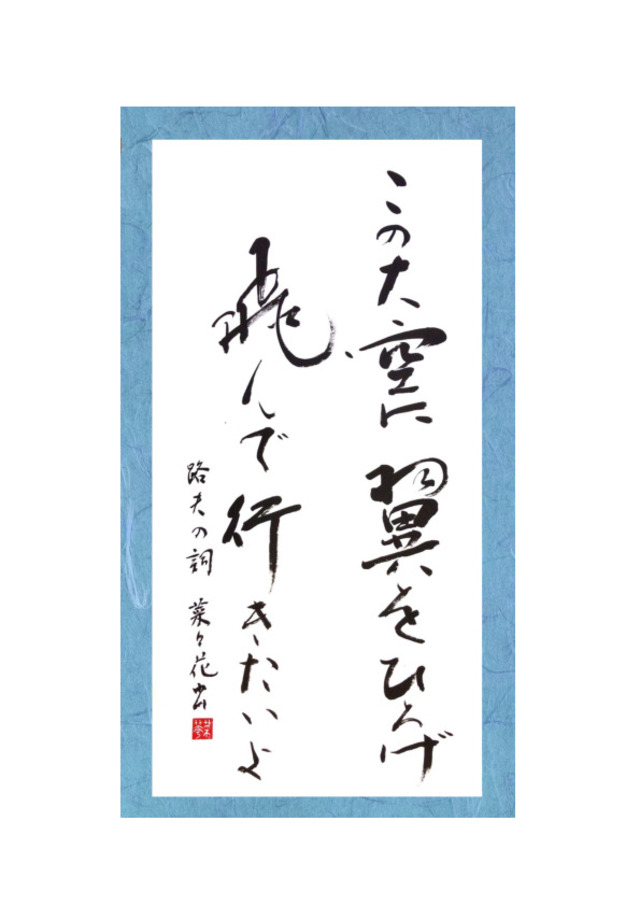 この大空に翼をひろげ
飛んで行きたいよ
路夫の詞 菜々花書